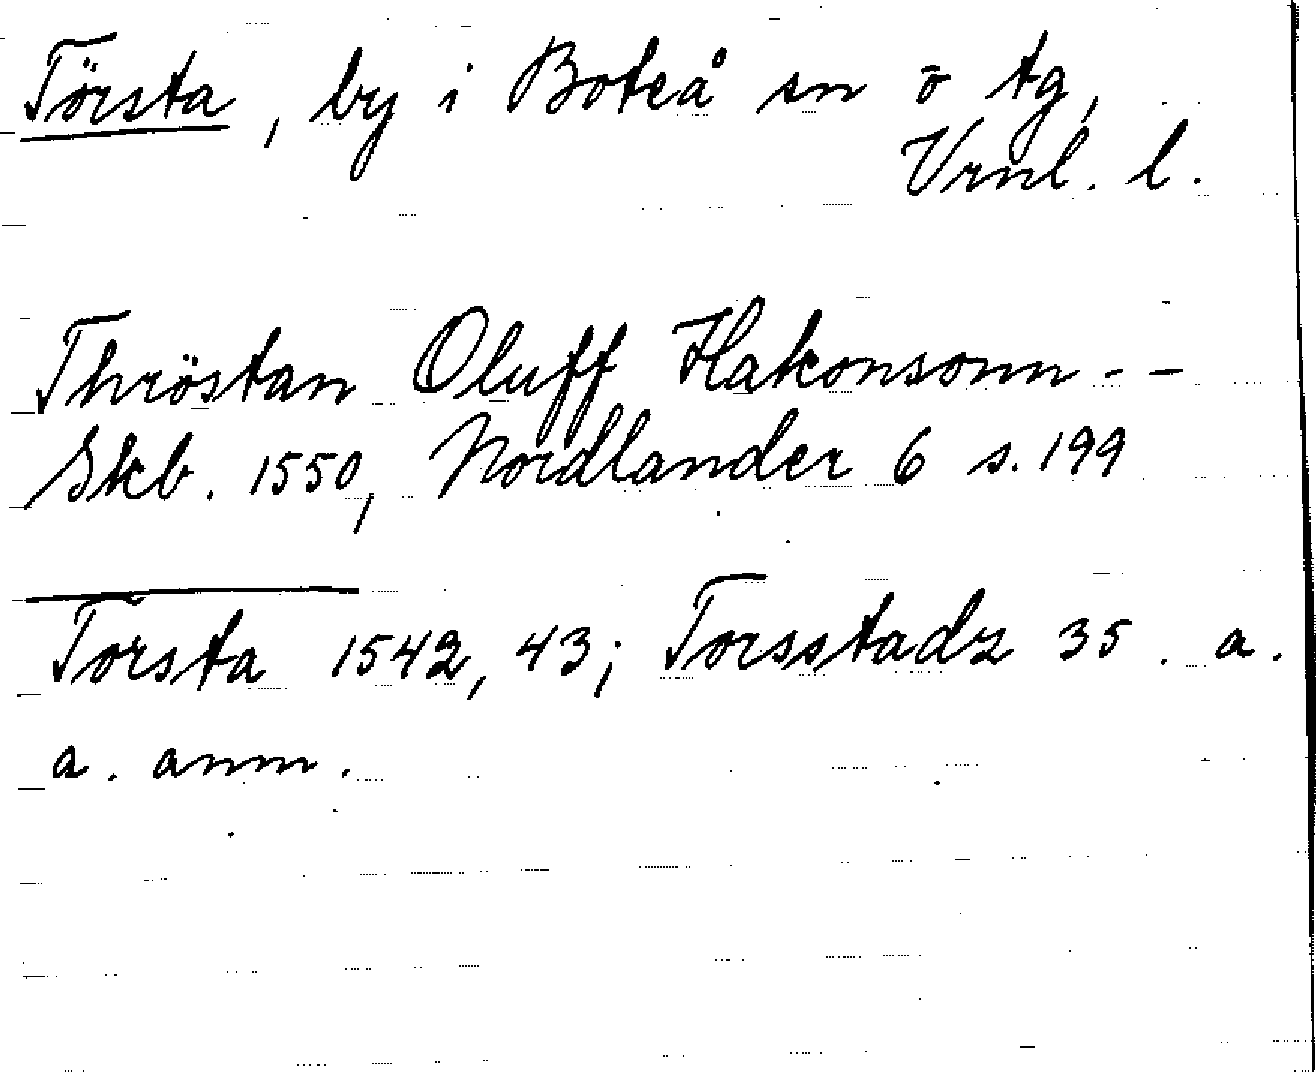 Törsta, by i Boteå sn ö tg,
Vrnl. l.
Thröstan Oluff Hakonsonn - -
Skb. 1550, Nordlander 6 s. 199
Torsta 1542, 43; Torsstadz 35. a.
a. anm.